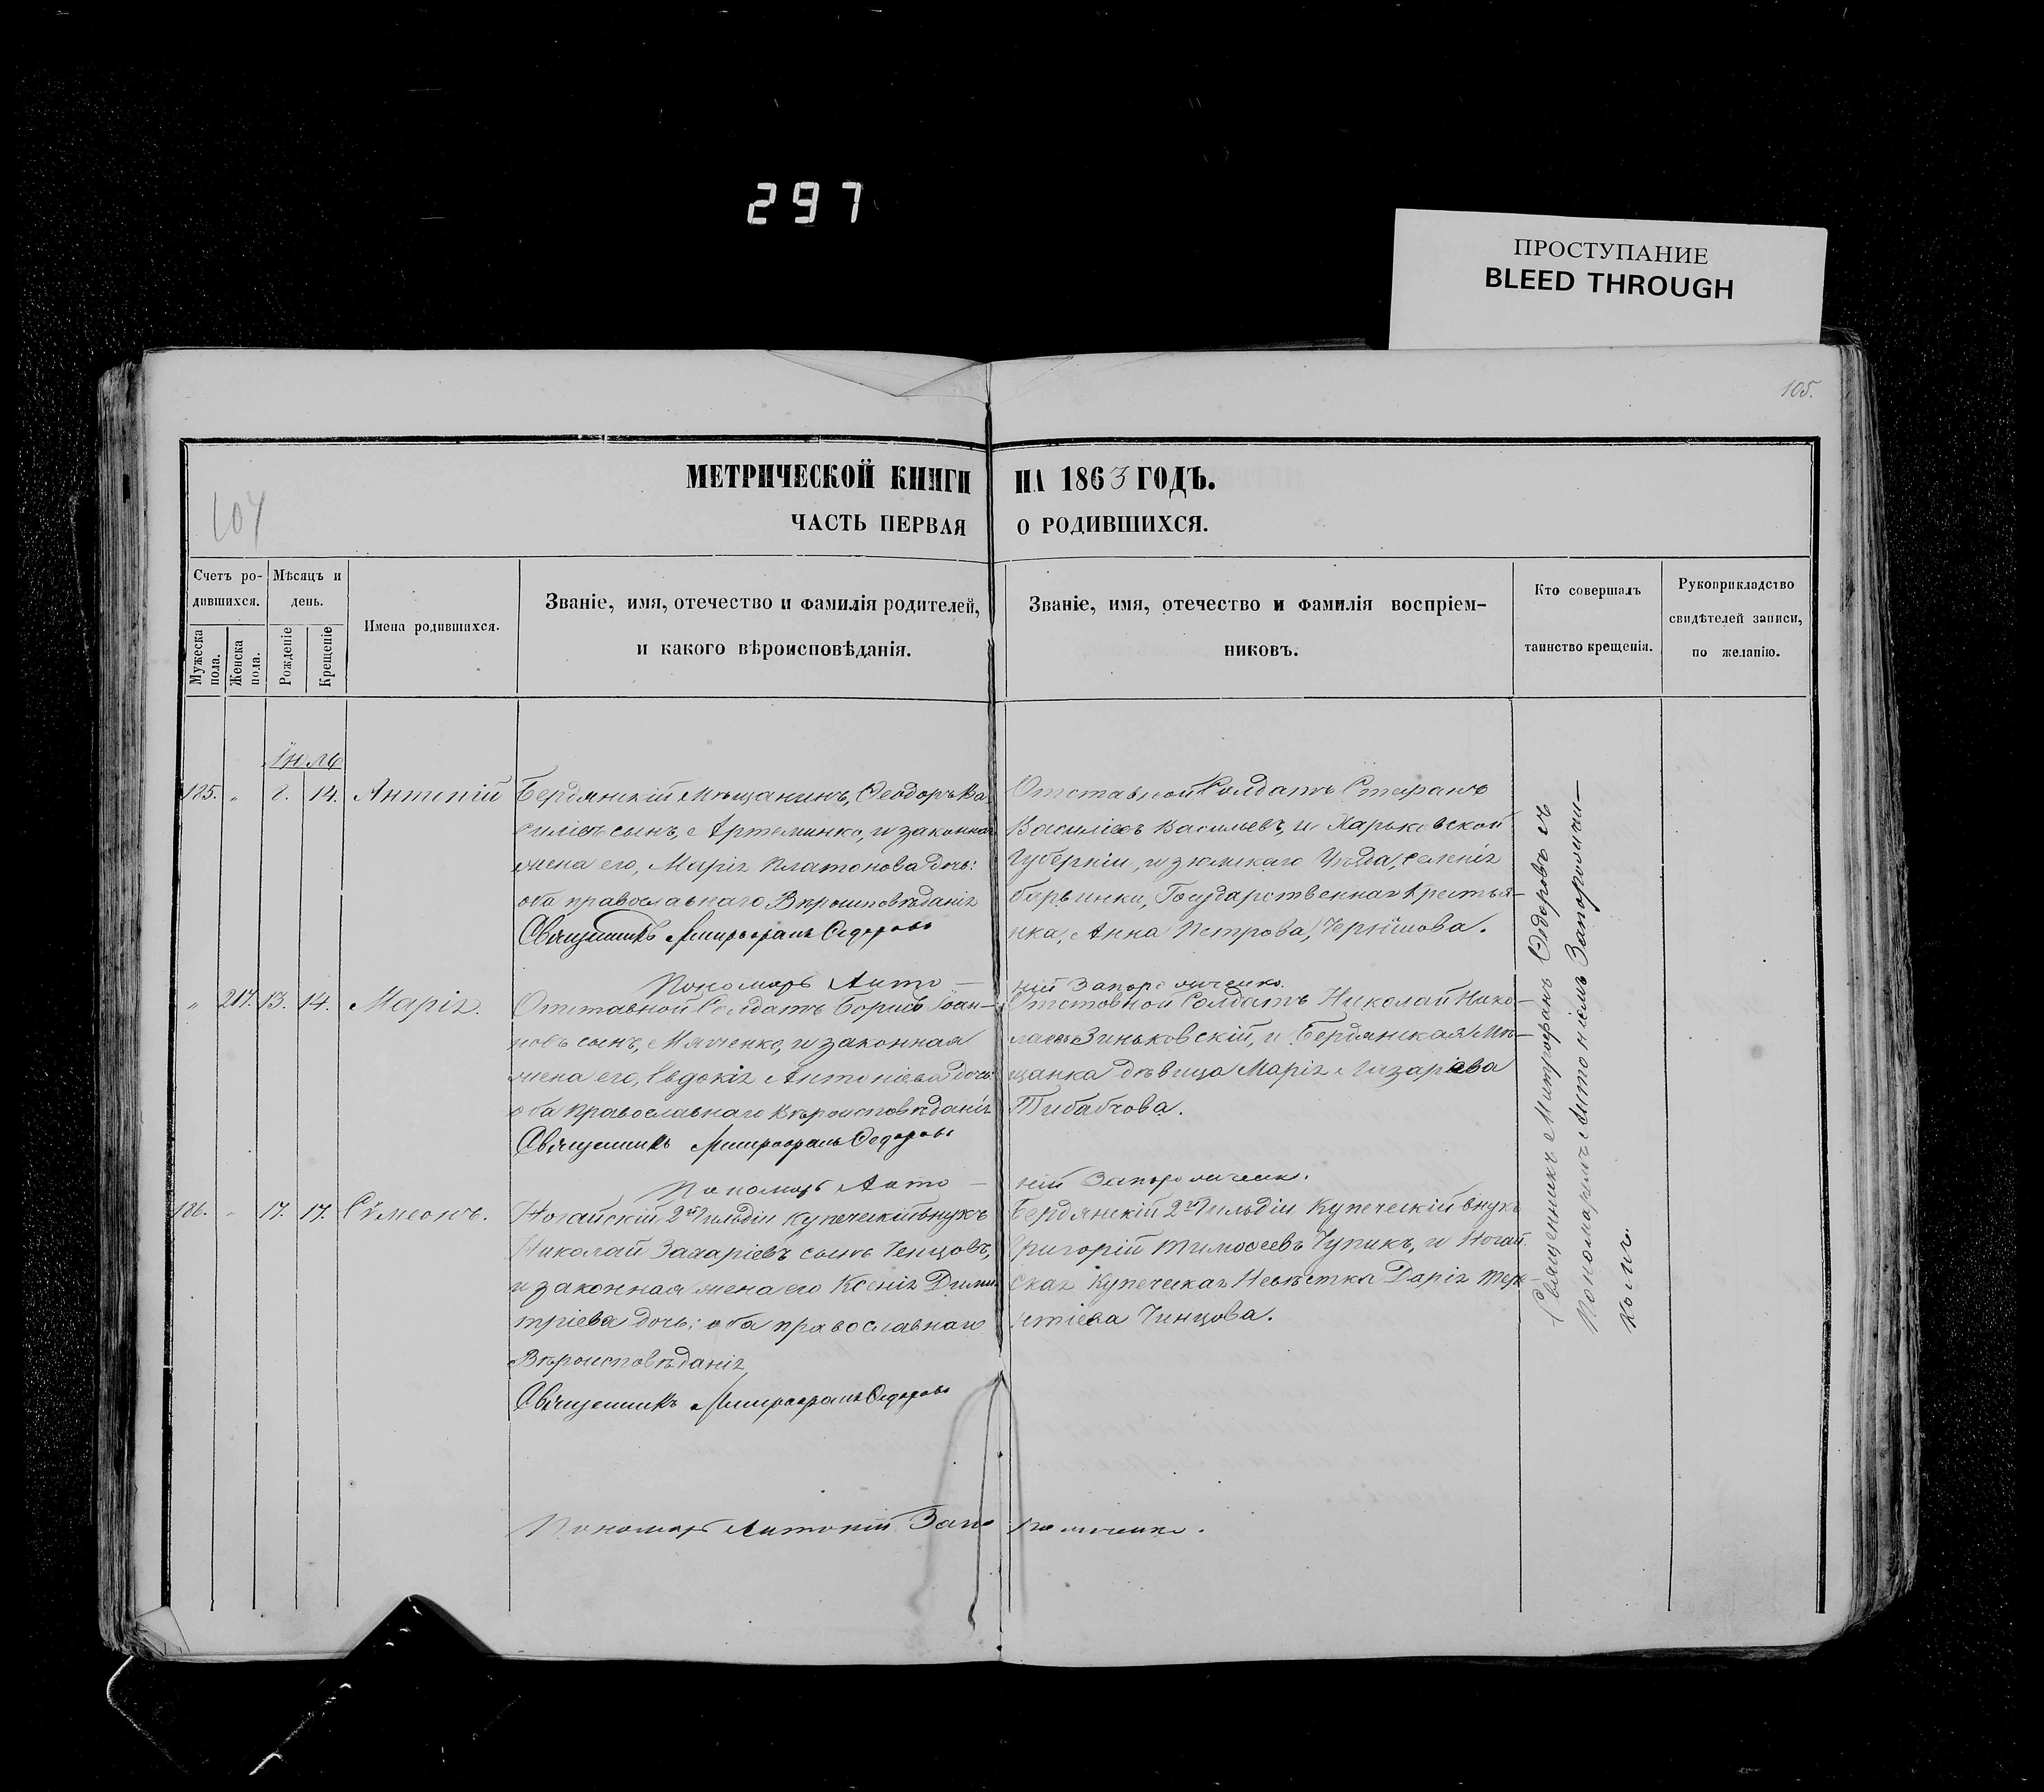 297
ПРОСТУПАНИЕ
BLEED THROUGH
105.
104
МЕТРИЧЕСКОЙ КНИГИ НА 1863 ГОДЪ.
ЧАСТЬ ПЕРВАЯ О РОДИВШИХСЯ.
Счетъ ро-
дившихся.
Мужеска пола.
Женска пола.
Мѣсяцъ и
день.
Рожденіе
Крещеніе
Имена родившихся.
Званіе, имя, отечество и фамилія родителей,
и какого вѣроисповѣданія.
Званіе, имя, отечество и фамилія воспріем-
никовъ.
Кто совершалъ
таинство крещенія.
Рукоприкладство
свидѣтелей записи,
по желанію.
14.
Бердянскій Мѣщанинъ, Ѳеодоръ Ва
силіевъ сынъ, Артеменко, и законная
жена его, Марія Платонова дочь:
оба православнаго Вѣроисповѣданія
Священникъ Митрофанъ Ѳедоровъ
Пономарь Анто-
Отставной Солдатъ Стефанъ
Василіевъ Васильевъ, и Харьковской
Губерніи, изюмскаго Уѣзда, селенія
барвинки, Государственная Крестья-
нка, Анна Петрова,
ній Запорожченко.
„ 217. 13. 14. Марія.
Отставной Солдатъ Борисъ Іоан-
новъ сынъ, и законная
жена его, Евдокія Антоніева дочь:
оба Православнаго Вѣроисповѣданія
Священникъ Митрофанъ Ѳедоровъ
Пономарь Анто-
Отставной Солдатъ Николай Нико-
лаевъ Зиньковскій, и Бердянская Мѣ-
щанка дѣвица Марія Лазаріева
ній Запорожченко.
186. 17. 17. Сѵмеонъ.
Ногайскій 2й Гильдіи купеческій внукъ
Николай Захаріевъ сынъ Ченцовъ,
и законная жена его Ксенія Дими
тріева дочь: оба православнаго
Вѣроисповѣданія
Священникъ Митрофанъ Ѳедоровъ
Бердянскій 2й Гильдіи Купеческій внукъ
Григорій Тимоѳеевъ Чупикъ, и Ногай
ская Купеческая Невѣстка Дарія Тере-
нтіева Чинцова.
Пономарь Антоній Запорожченко.
Священникъ Митрофанъ Ѳедоровъ съ
Пономаремъ Антоніемъ Запорожчен-
комъ.